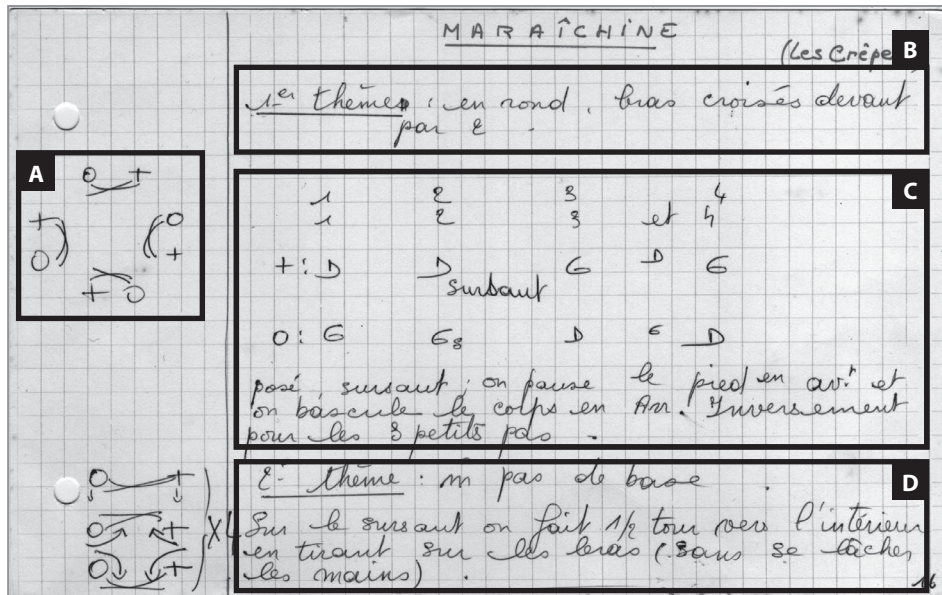 MARAÎCHINE
(Les Crêpe
B
1er thème : en rond, bras croisés devant
par 2.
A
C
1 2 3 4
1 2 3 et 4
+ : D D G D G
sursaut
O : G G D G D
posé sursaut, on pause le pied en avt et
on bascule le corps en Arr. Inversement
pour les 3 petits pas.
D
2e thème : m pas de base.
Sur le sursaut on fait 1/2 tour vers l'intérieur
en tirant sur les bras (sans se lâcher
les mains).
16